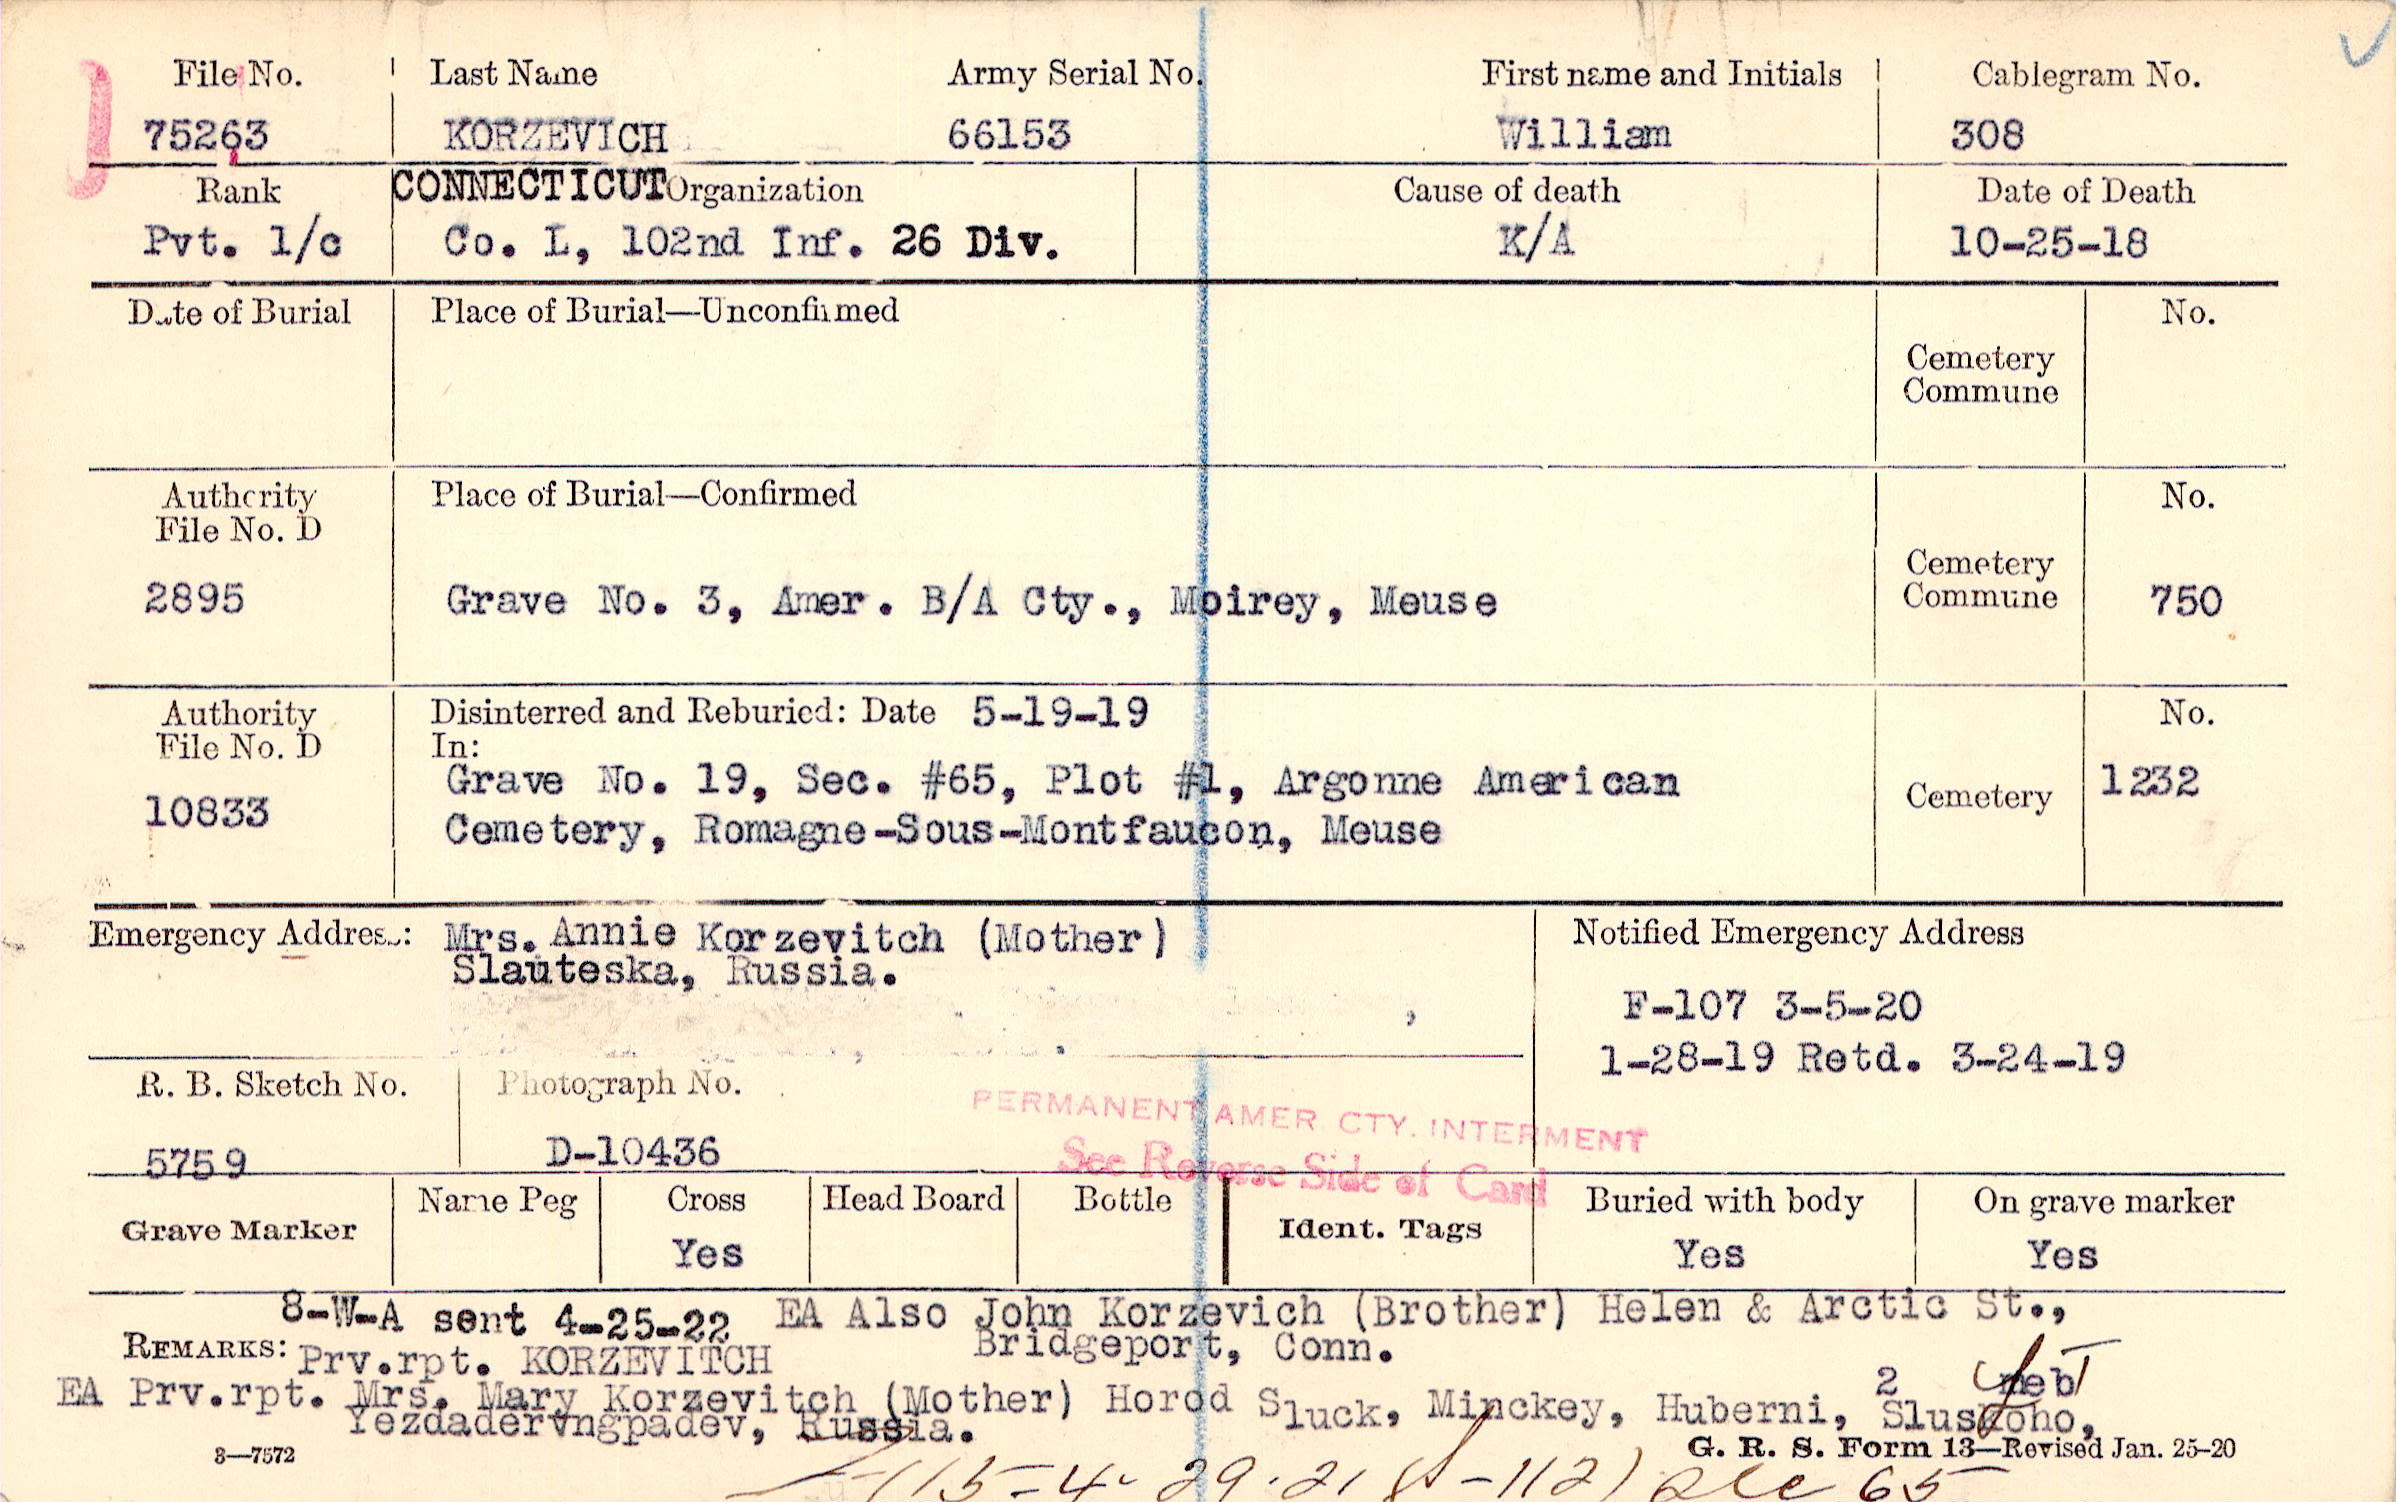 File No. Last Name Army Serial No. First name and Initials Cablegram No.
75263 KORZEVICH 66153 William 308
Rank CONNECTICUT Organization Cause of death Date of Death
Pvt. 1/c Co. L, 102nd Inf. 26 Div. K/A 10-25-18
Date of Burial Place of Burial—Unconfirmed No.
Cemetery
Commune
Authority Place of Burial—Confirmed No.
File No. D
Cemetery
2895 Grave No. 3, Amer. B/A Cty., Moirey, Meuse Commune 750
Authority Disinterred and Reburied: Date 5-19-19 No.
File No. D In:
Grave No. 19, Sec. #65, Plot #1, Argonne American Cemetery 1232
10833 Cemetery, Romagne-Sous-Montfaucon, Meuse
Emergency Address: Mrs. Annie Korzevitch (Mother) Notified Emergency Address
Slauteska, Russia.
F-107 3-5-20
1-28-19 Retd. 3-24-19
R. B. Sketch No. Photograph No.
PERMANENT AMER CTY. INTERMENT
5759 D-10436 See Reverse Side of Card
Grave Marker Name Peg Cross Head Board Bottle Ident. Tags Buried with body On grave marker
Yes Yes Yes
8-W-A sent 4-25-22 EA Also John Korzevich (Brother) Helen & Arctic St.,
Bridgeport, Conn.
REMARKS: Prv.rpt. KORZEVITCH
2
EA Prv.rpt. Mrs. Mary Korzevitch (Mother) Horod Sluck, Minckey, Huberni, Sluskoho,
Yezdadervngpadev, Russia.
3—7572 G. R. S. Form 13—Revised Jan. 25-20